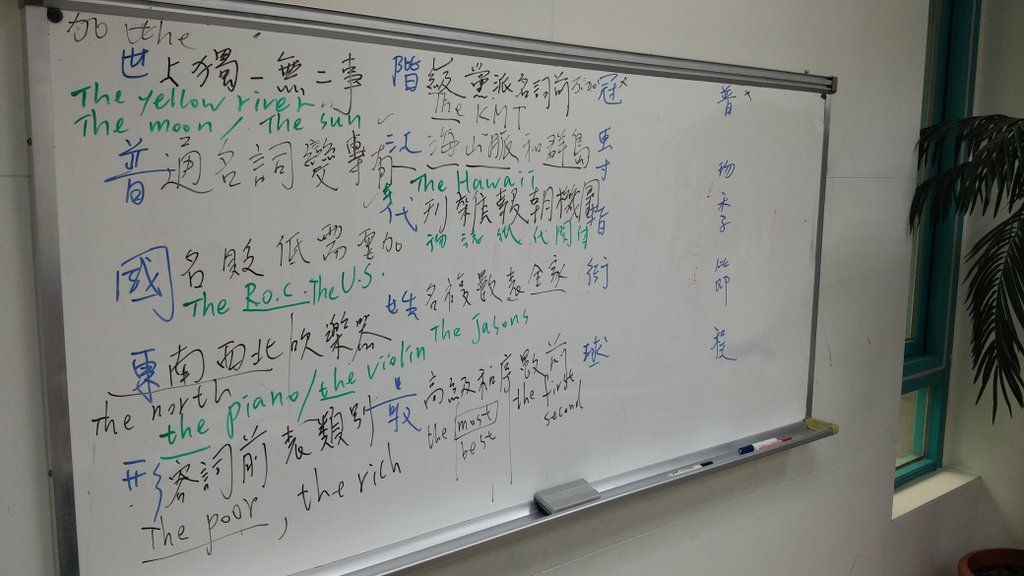 加 the
世上獨一無二事
The yellow river
The moon / The sun
普通名詞變專有
國名
The R.o.c. The U.S.
東南西北吹樂器
the north
the piano/the violin
形容詞前表類別
The poor, the rich
階級黨派名詞前不加
the KMT
江海山脈和群島
The Hawaii
代
姓名複數表全家
The Jasons
最高級和序數前
the most
best
the first,
second
冠
街
球
普
物